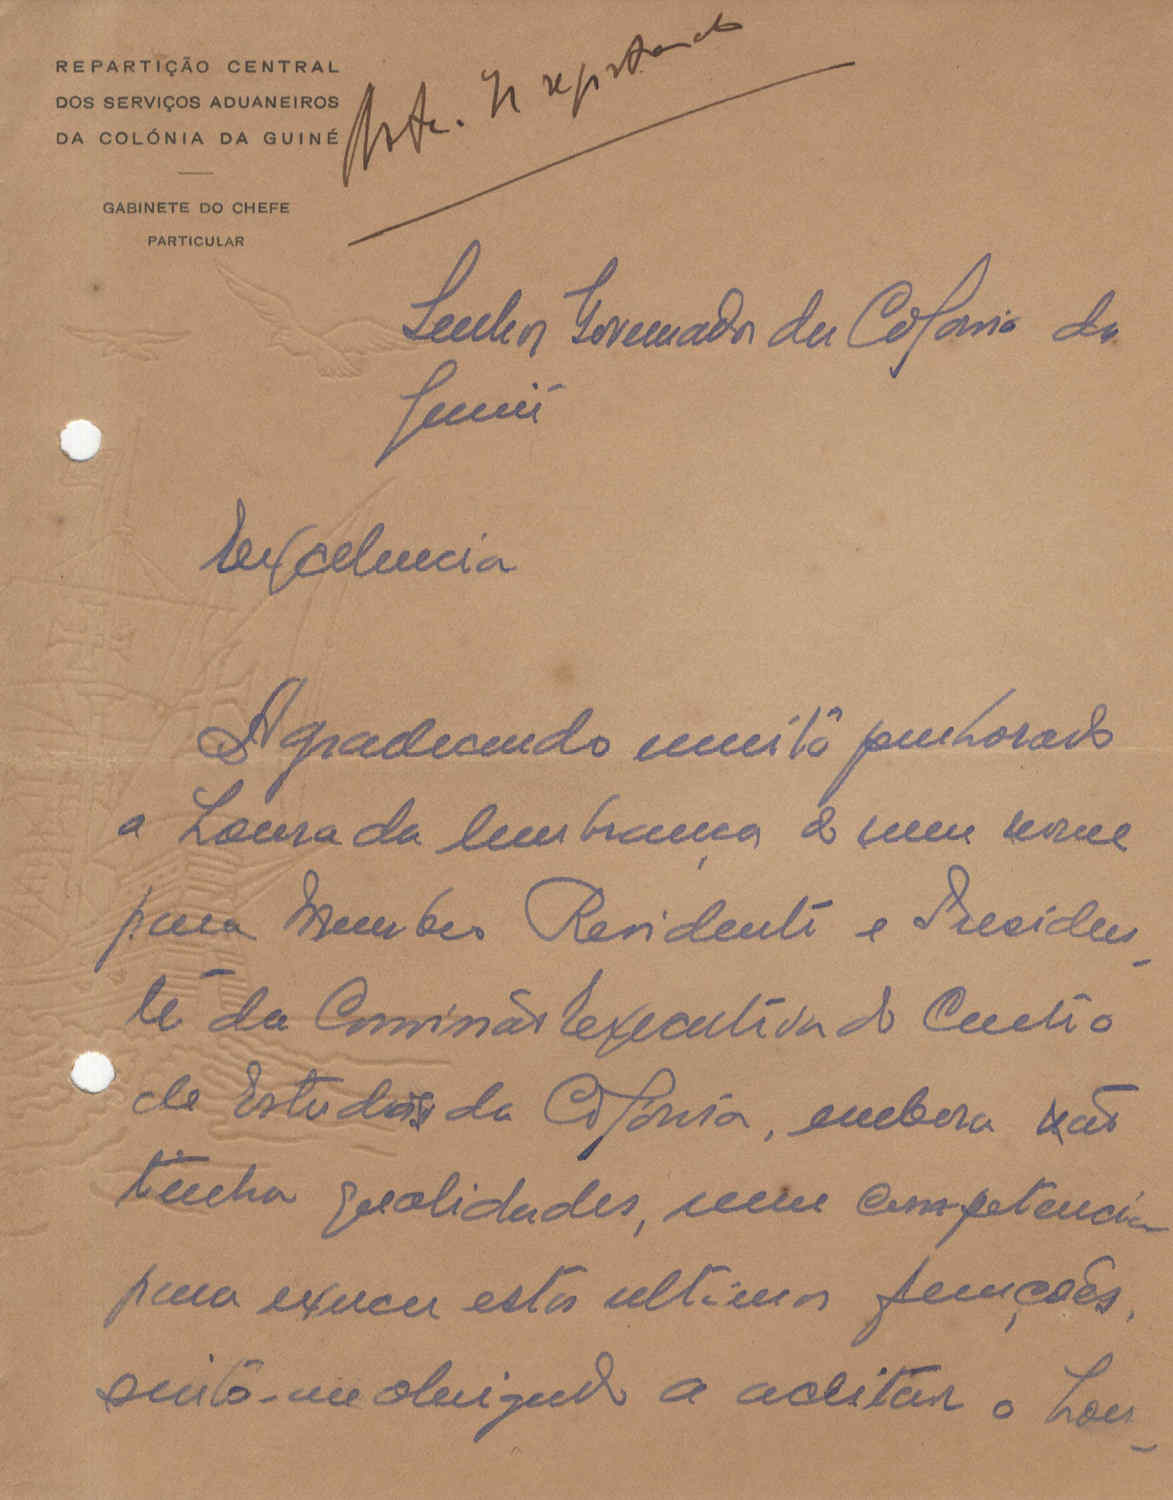 REPARTIÇÃO CENTRAL
DOS SERVIÇOS ADUANEIROS
DA COLÓNIA DA GUINÉ
GABINETE DO CHEFE
PARTICULAR
Senhor Governador da Colónia da
Guiné
Excelencia
Agradecendo muito penhorado
a honra da lembrança do meu nome
para Membro Residente e Presiden-
te da Comissão Executiva do Centro
de Estudos da Colónia, embora não
tenha qualidades, nem competencia
para exercer estas ultimas funções,
sinto-me obrigado a aceitar o hon-